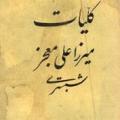 کلیات
میرزا علی معجز
شبستری